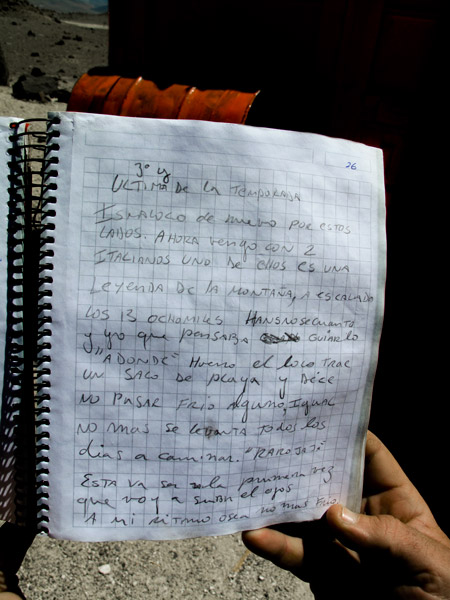 26
3º y
ULTIMA DE LA TEMPORADA
ISMALOCO de nuevo por estos
LADOS. AHORA vengo con 2
ITALIANOS UNO DE ellos es UNA
Leyenda DE LA MONTAÑA, A escalado
LOS 13 OCHOMILES
y yo que pensaba guiarlo
"ADONDE" el loco TRAE
UN SACO DE playa y Dice
NO PASAR FRIO Alguno, Igual
NO mas se levanta TODOS los
dias a caminar. "RAROJAJA"
ESTA va ser la primera vez
que voy a subir el ojos
A mi RITMO OSEA NO mas FRIO